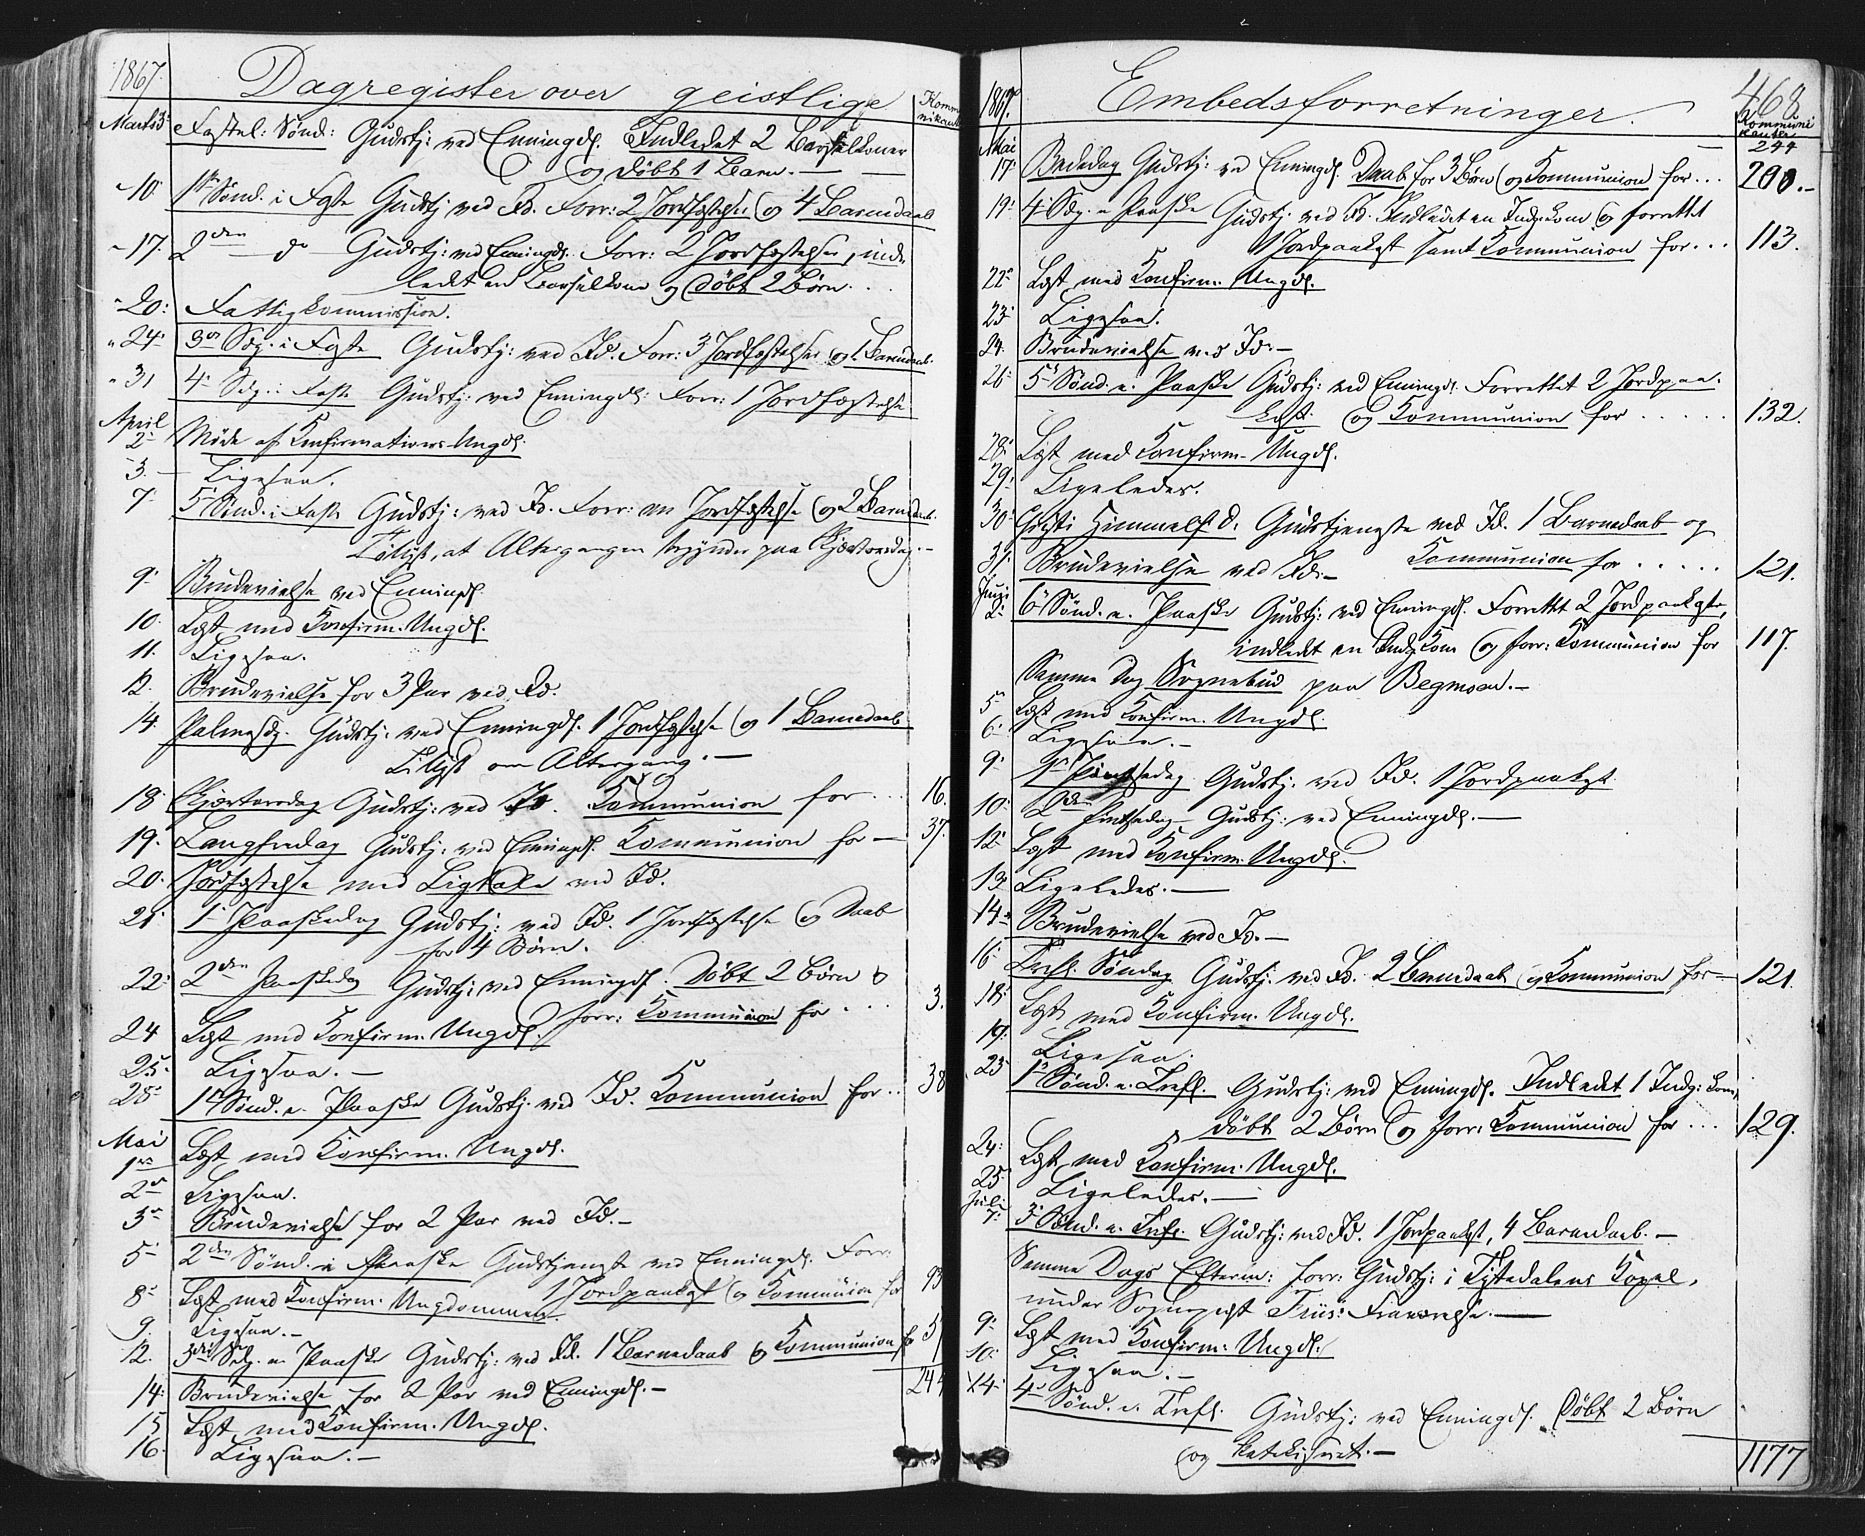 1867. Dagregister over geistlige
Kommunikanter
Marts 3: Fastel: Sønd: Gudstj: ved Enningd. Indledet 2 Barselkoner
og døbt 1 Barn. —
" 10: 1ste Sønd. i Faste Gudstj. ved Id. Forr: 2 Jordfæstelser og 4 Barnedaab
" 17. 2den — do — Gudstj: ved Enningd. Forr: 2 Jordfæstelser, ind-
ledet en Barselkone og døbt 2 Børn.
" 20: Fattigkommission.
" 24: 3die Sdg. i Faste Gudstj: ved Id. Forr: 3 Jordfæstelser og 1 Barnedaab.
" 31 4: Sdg. i Faste Gudstj: ved Enningdl: Forr: 1 Jordfæstelse
April
2: Møde af Konfirmations-Ungd.
3. — Ligesaa.
7: 5: Sønd. i Faste Gudstj: ved Id. Forr: en Jordfæstelse og 2 Barnedaab.
Tillyst, at Altergangen begynder paa Skjærtorsdag. —
9: Brudevielse ved Enningd.
10. Læst med Konfirm. Ungd.
11. Ligesaa.
12. Brudevielse for 3 Par ved Id.
14. Palmesdg. Gudstj. ved Enningdl. 1 Jordfæstelse og 1 Barnedaab
Tillyst om Altergang. —
18: Skjærtorsdag Gudstj: ved Id. Kommunion for ... 16.
19. Langfredag Gudstj: ved Enningd. Kommunion for — 37.
20. Jordfæstelse med Ligtale ved Id.
21. 1: Paaskedag Gudstj: ved Id. 1 Jordfæstelse og Daab
for 4 Børn.
22: 2den Paaskedag Gudstj: ved Enningdl. Døbt 2 Børn &
forr: Kommunion for ... 3.
24 Læst med Konfirm. Ungd.
25: Ligesaa. —
28: 1ste Sønd. e. Paaske Gudstj. ved Id. Kommunion for .. 38
Mai
1ste Læst med Konfirm. Ungd.
2den Ligesaa.
3die Brudevielse for 2 Par ved Id. —
5: 2den Sønd. e. Paaske Gudstjeneste ved Enningd. Forr:
1 Jordpaakast og Kommunion for 93
8: Læst med Konfirm. Ungdommen.
9. Ligesaa. —
12. 3die Sdg. e. Paaske Gudstj: ved Id. 1 Barnedaab og Kommunion for 57
14: Brudevielse for 2 Par ved Enningd. — 244
15 Læst med Konfirm. Ungd.
16. Ligesaa. —
1867. Embedsforretninger. 468
Kommunikanter
244
Mai
17: Bededag Gudstj: ved Enningd. Daab for 3 Børn og Kommunion for ... 200. —
19: 4: Sdg. e. Paaske Gudstj. ved Id. Indledet en Indg.kone og forrettet
1 Jordpaakast samt Kommunion for ... 113.
22: Læst med Konfirm. Ungd.
23: Ligesaa.
24. Brudevielse ved Id: —
26: 5te Sønd. e. Paaske Gudstj: ved Enningd. Forrettet 2 Jordpaa-
kast. og Kommunion for ..... 132.
28: Læst med Konfirm. Ungd.
29: Ligeledes.
30: Christi Himmelf. D. Gudstjeneste ved Id. 1 Barnedaab og
Kommunion for ..... 121.
31: Brudevielse ved Id: —
Juni
2: 6te Sønd. e. Paaske Gudstj: ved Enningd. Forrettet 2 Jordpaakaster,
indledet en Indg. Kone og forr: Kommunion for 117.
Samme Dag Sognebud paa Begmoen. —
5: Læst med Konfirm. Ungd.
6: Ligesaa. —
9: 1ste Pintsedag Gudstj. ved Id. 1 Jordpaakast.
10: 2den Pintsedag — Gudstj: ved Enningd. —
12: Læst med Konfirm. Ungd.
13: Ligeledes. —
14: Brudevielse ved Id. —
16: Tref. Søndag Gudstj. ved Id. 2 Barnedaab og Kommunion for — 121.
18: Læst med Konfirm. Ungd.
19. Ligesaa.
23: 1ste Sønd. e. Tref. Gudstj: ved Enningd. Indledet 1 Indg: kone,
døbt 2 Børn og forr: Kommunion for ... 129.
24: Læst med Konfirm. Ungd.
25 Ligeledes. —
Juli
7: 3: Sønd. e. Tref. Gudstj: ved Id. 1 Jordpaakast, 4 Barnedaab. —
Samme Dags Efterm: forr: Gudstj: i Tistedalens Kapel,
under Sognepræst Friis: Fraværelse. —
9: Læst med Konfirm: Ungd.
10: Ligesaa. —
14: 4de Sønd. e. Tref. Gudstj: ved Enningd. Døbt 2 Børn
og katekiseret. —
1177